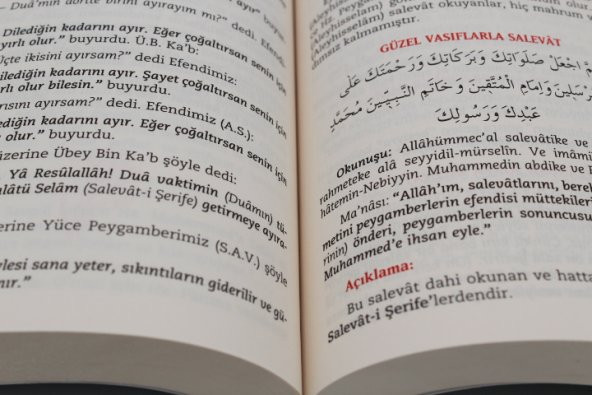 Duâ'mın dörtte birini ayırayım mı?" dedi.
Dilediğin kadarını ayır. Eğer çoğaltırsan senin için
yırlı olur." buyurdu. Ü.B. Ka'b:
Üçte ikisini ayırsam?" dedi. Efendimiz:
Dilediğin kadarını ayır. Şayet çoğaltırsan senin için
rlı olur bilesin." buyurdu.
arısını ayırsam?" dedi. Efendimiz (A.S.):
lediğin kadarını ayır. Eğer çoğaltırsan senin için
rlı olur." buyurdu.
üzerine Übey Bin Ka'b şöyle dedi:
Yâ Resûlallâh! Duâ vaktimin (Duâmın) tü-
alâtü Selâm (Salevât-i Şerife) getirmeye ayıra-
erine Yüce Peygamberimiz (S.A.V.) şöyle
ylesi sana yeter, sıkıntıların giderilir ve gü-
nır."
(Aleyhisselâm) salevât okuyanlar, hiç mahrum v
dımsız kalmamıştır.
GÜZEL VASIFLARLA SALEVÂT
اجْعَلْ صَلَوَاتِكَ وَبَرَكَاتِكَ وَرَحْمَتَكَ عَلَى
وَاِمَامِ الْمُتَّقِينَ وَخَاتَمِ النَّبِيِّينَ مُحَمَّدٍ
عَبْدِكَ وَرَسُولِكَ
Okunuşu: Allâhümmec'al salevâtike ve
rahmeteke alâ seyyidil-mürselîn. Ve imâmi
hâtemin-Nebiyyin. Muhammedin abdike ve R
Ma'nâsı: "Allâh'ım, salevâtlarını, berek
metini peygamberlerin efendisi müttekiler
rinin) önderi, peygamberlerin sonuncusu
Muhammed'e ihsan eyle."
Açıklama:
Bu salevât dahi okunan ve hatta
Salevât-i Şerife'lerdendir.